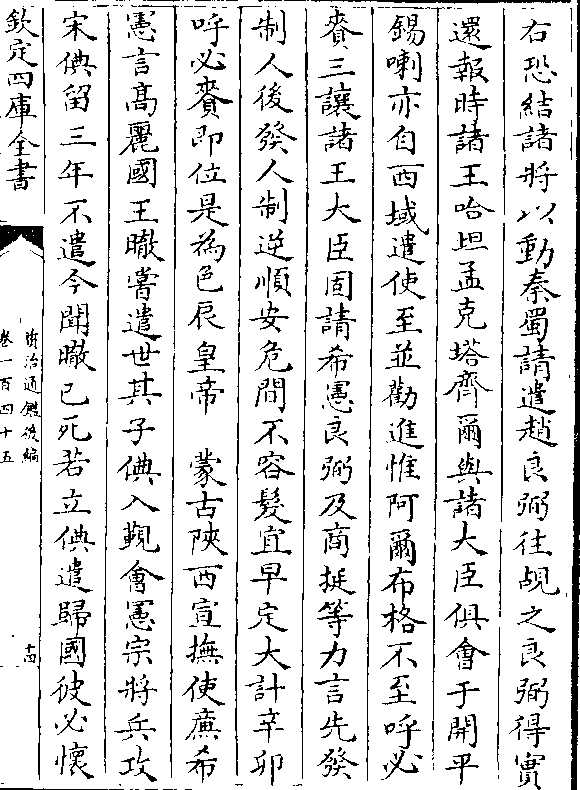 右恐結諸將以動秦蜀請遣趙良弼往覘之良弼得實
還報時諸王哈坦孟克塔齊爾與諸大臣俱會于開平
錫喇亦自西域遣使至並勸進惟阿爾布格不至呼必
賚三讓諸王大臣固請希憲良弼及商挺等力言先發
制人後發人制逆順安危間不容髮宜早定大計辛卯
呼必賚即位是為色辰皇帝 蒙古陝西宣撫使廉希
憲言高麗國王㬚嘗遣世其子倎入覲會憲宗將兵攻
宋倎留三年不遣今聞㬚已死若立倎遣歸國彼必懷
欽定四庫全書
資治通鑑後編
卷一百四十五
十四